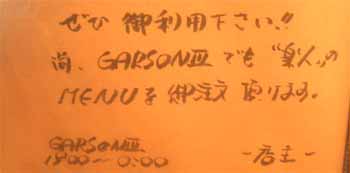 ぜひ御利用下さい!!
尚、GARSONⅢでも"楽人"の
MENUを御注文頂けます。
GARSONⅢ
18:00〜0:00 -店主-